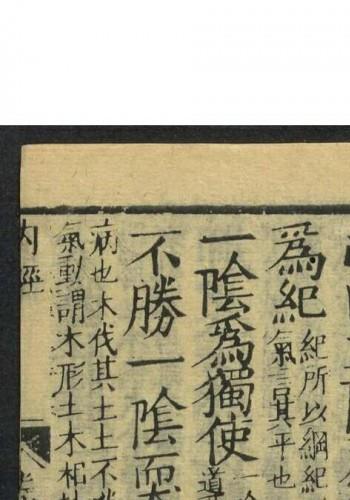 爲紀
紀所以綱紀
氣言其平也
一陰爲獨使
不勝一陰
病也木伐其土土不
氣動謂木形土木相
內經